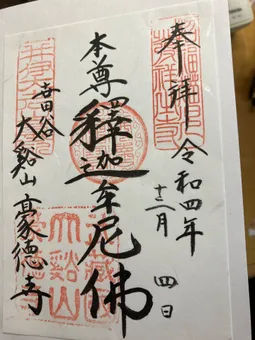 奉拝
令和四年
十二月 四日
本尊 釋迦牟尼佛
世田谷
大谿山 豪德寺
大谿山